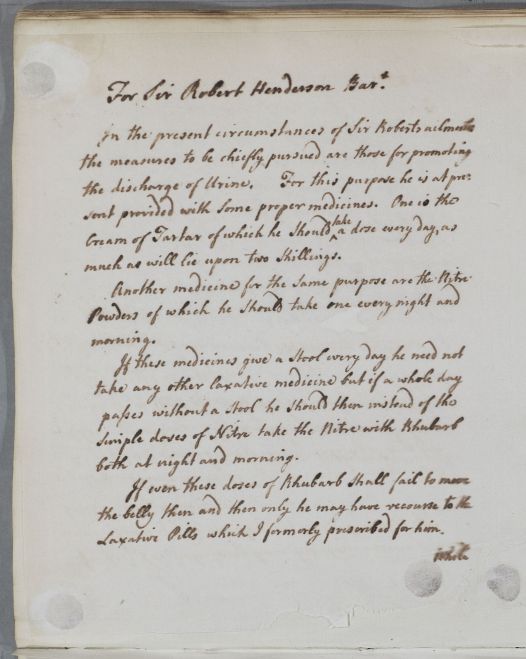 For Sir Robert Henderson Bar.t
In the present circumstances of Sir Roberts ailments
the measures to be chiefly pursued are those for promoting
the discharge of Urine. For this purpose he is at pre-
sent provided with some proper medicines. One is the
Cream of Tartar of which he should take a dose every day, as
much as will lie upon two Shillings.
Another medicine for the same purpose are the Nitre
Powders of which he should take one every night and
morning.
If these medicines give a Stool every day he need not
take any other laxative medicine but if a whole day
passes without a Stool he should then instead of the
simple doses of Nitre take the Nitre with Rhubarb
both at night and morning.
If even these doses of Rhubarb shall fail to move
the belly then and then only he may have recourse to the
Laxative Pills which I formerly prescribed for him.
While